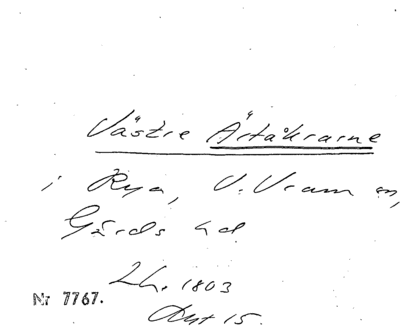 Västre Ärtåkrarne
i Rya, V. Vram sn,
Gärds hd.
Lh. 1803
Akt 15.
Nr 7767.